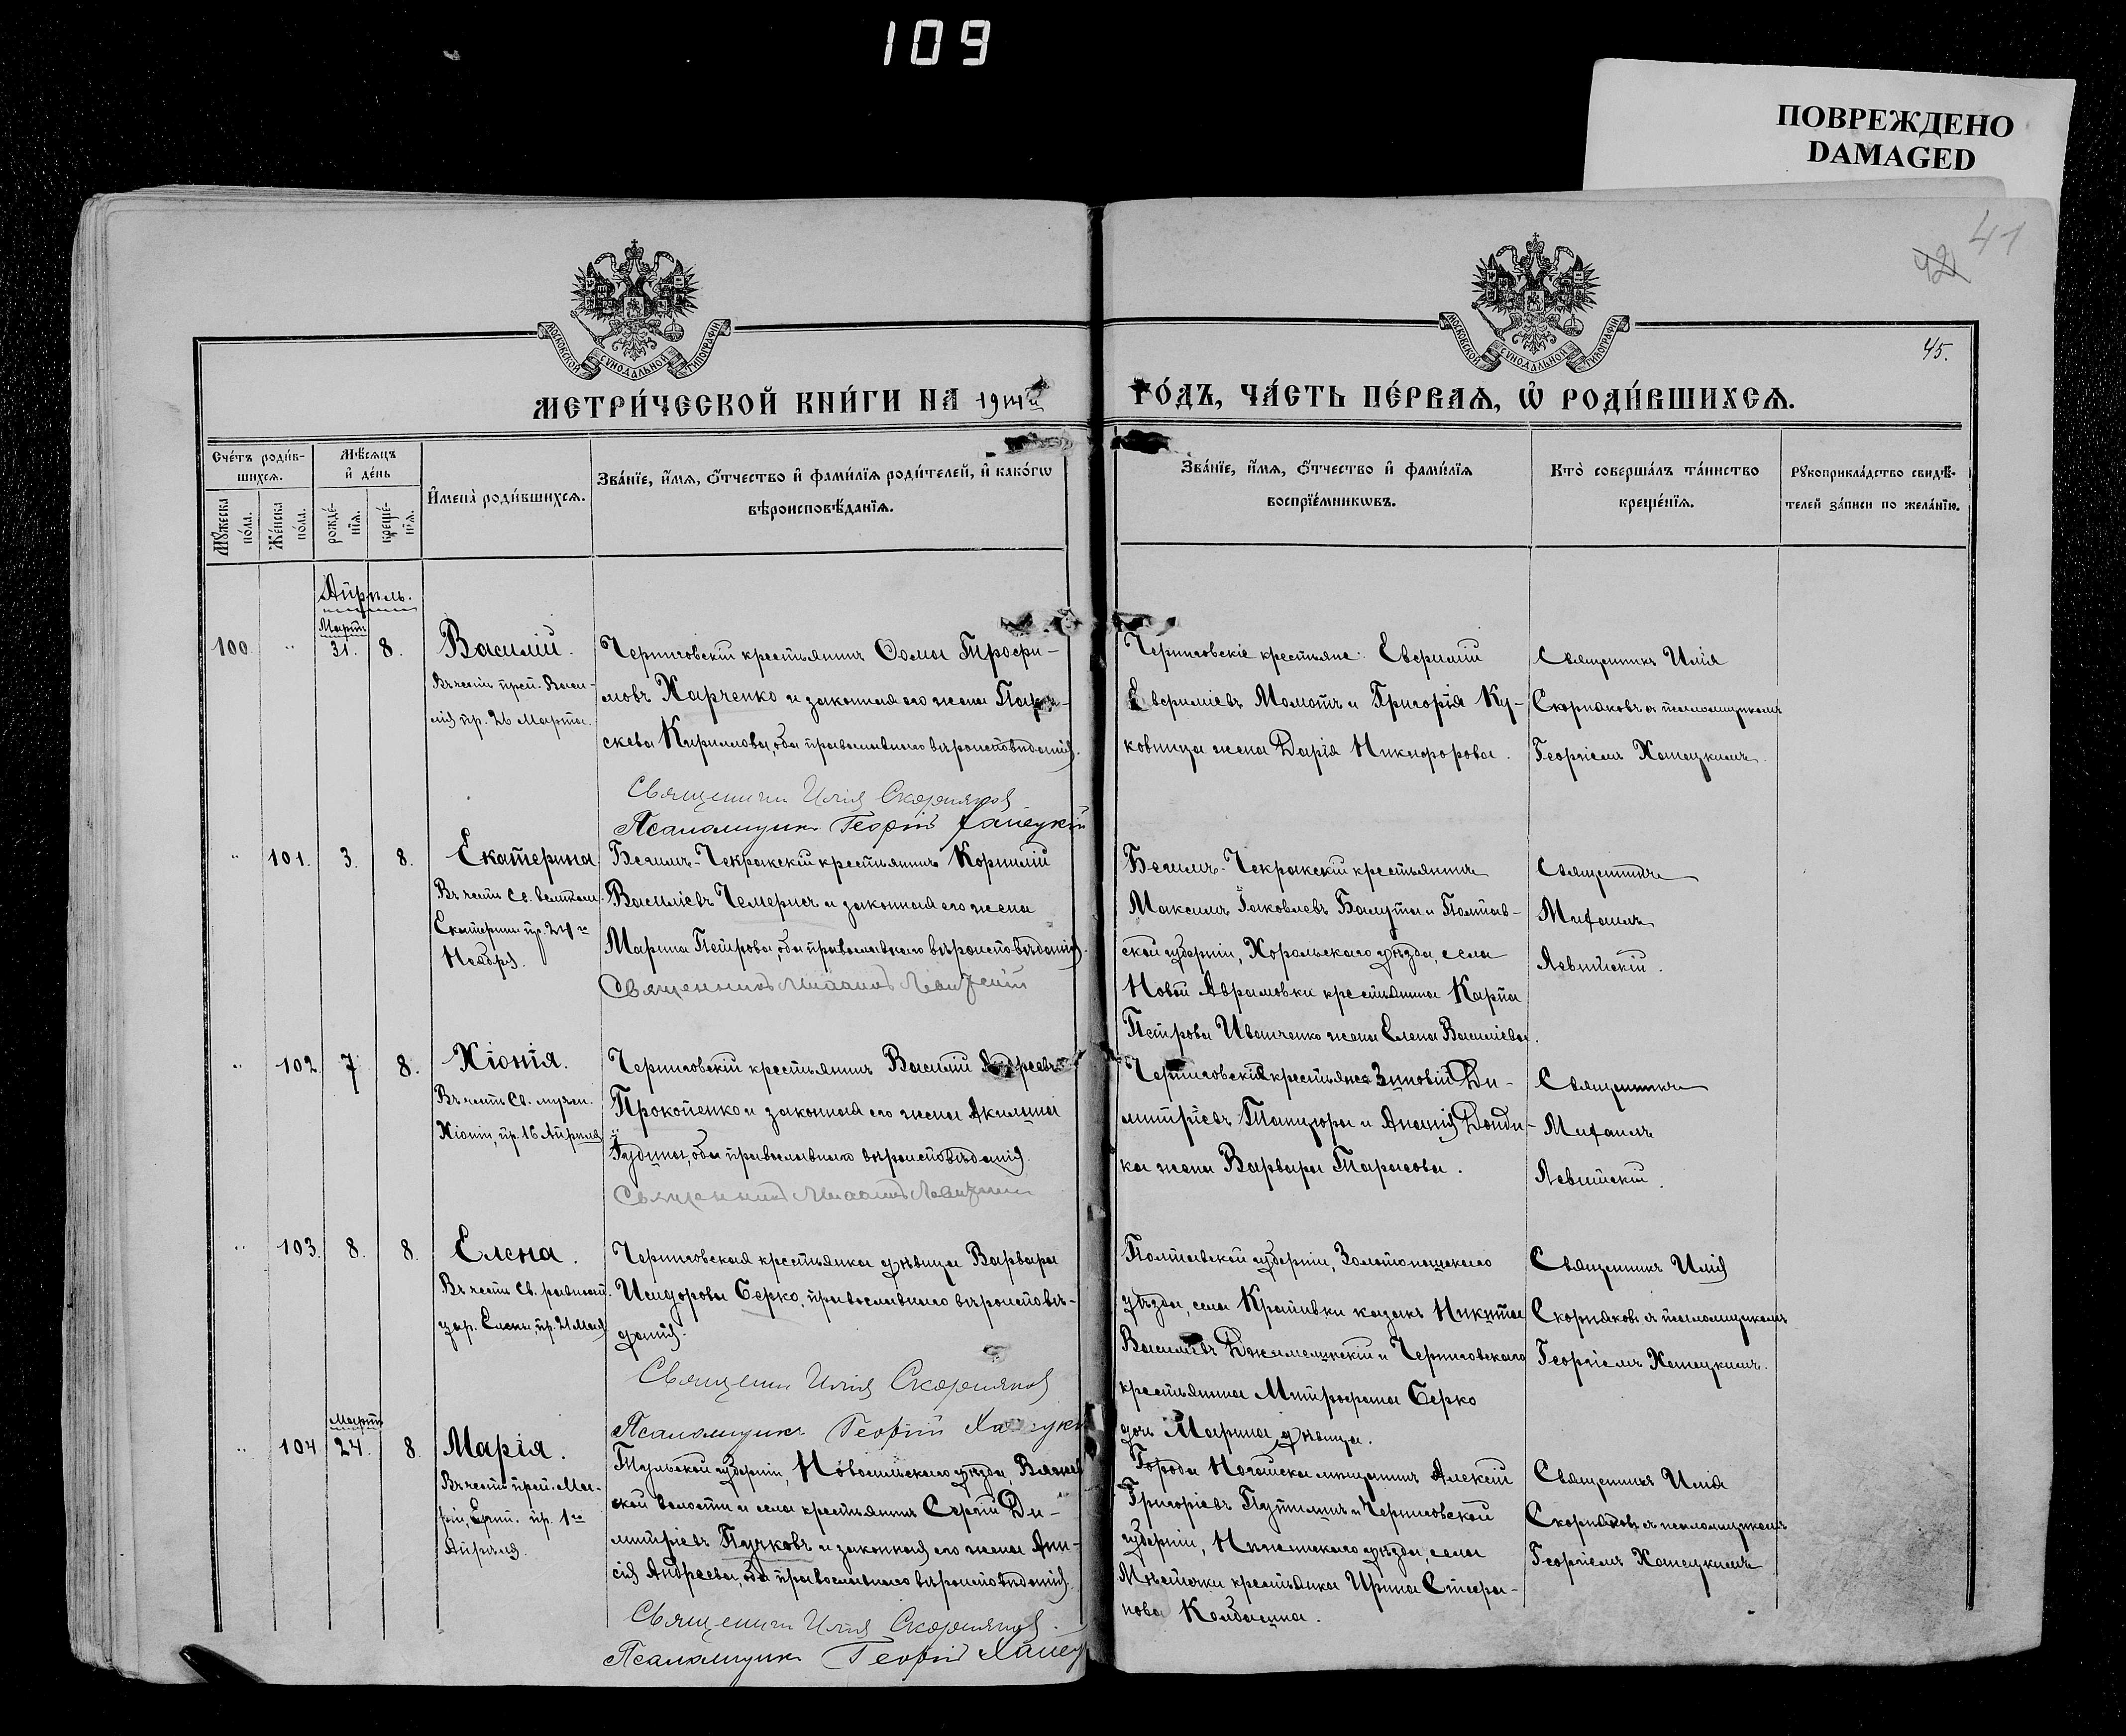 109
ПОВРЕЖДЕНО
DAMAGED
41
42
45.
МОСКОВСКОЙ СѴНОДАЛЬНОЙ ТИПОГРАФІИ
МОСКОВСКОЙ СѴНОДАЛЬНОЙ ТИПОГРАФІИ
МЕТРИ́ЧЕСКОЙ КНИ́ГИ НА 1914й
ГО́ДЪ, ЧА́СТЬ ПЕ́РВАѦ, Ѡ҆ РОДИ́ВШИХСѦ.
Сче́тъ роди́в-
шихсѧ.
Мѣ́сѧцъ
и҆ де́нь
И҆мена̀ роди́вшихсѧ.
Зва́нїе, и҆́мѧ, ѻ҆́тчество и҆ фами́лїѧ роди́телей, и҆ како́гѡ
вѣроисповѣ́данїѧ.
Мꙋ́жеска
по́ла.
Же́нска
по́ла.
рожде́-
нїѧ.
креще́-
нїѧ.
Зва́нїе, и҆́мѧ, ѻ҆́тчество и҆ фами́лїѧ
воспрїе́мникѡвъ.
Кто̀ соверша́лъ та́инство
креще́нїѧ.
Рꙋкоприкла́дство свидѣ́-
телей за́писи по жела́нїю.
Апрѣль.
Мартъ
100 " 31. 8. Василій.
Въ честь преп. Васи-
лія пр. 26 Марта.
Черниговскій крестьянинъ Ѳома Трофи-
мовъ Харченко и законная его жена Пара-
скева Кириллова, оба православнаго вѣроисповѣданія.
Священникъ Илія Скорняковъ
Псаломщикъ Георгій Ханецкій
Черниговскіе крестьяне: Евфимій
Евфиміевъ Момотъ и Григорія Ку-
ковица жена Дарія Никифорова.
Священникъ Илія
Скорняковъ съ псаломщикомъ
Георгіемъ Ханецкимъ.
" 101. 3. 8. Екатерина
Въ честь Св. великом.
Екатерины пр. 24го
Ноября.
Бегимъ-Чекракскій крестьянинъ Корнилій
Василіевъ Чемерисъ и законная его жена
Марина Петрова, оба православнаго вѣроисповѣданія.
Священникъ Михаилъ Левитскій
Бегимъ-Чекракскій крестьянинъ
Максимъ Іаковлевъ Балута и Полтав-
ской губерніи, Хорольскаго уѣзда, села
Новой Аврамовки крестьянина Карпа
Петрова Иванченко жена Елена Василіева.
Священникъ
Михаилъ
Левитскій.
" 102. 7. 8. Хіонія.
Въ честь Св. мучен.
Хіоніи, пр. 16 Апрѣля
Черниговскій крестьянинъ Василій Андреевъ
Прокопенко и законная его жена Акилина
Гудина, оба православнаго вѣроисповѣданія.
Священникъ Михаилъ Левитскій
Черниговскіе крестьяне Зиновій Ди-
митріевъ Танцюра и Ананія Донди-
ка жена Варвара Тарасова.
Священникъ
Михаилъ
Левитскій.
" 103. 8. 8. Елена.
Въ честь Св. равноап.
цар. Елены, пр. 21 Мая
Черниговская крестьянка дѣвица Варвара
Исидорова Серко, православнаго вѣроисповѣ-
данія.
Священникъ Илія Скорняковъ
Псаломщикъ Георгій Ханецкій
Полтавской губерніи, Золотоношскаго
уѣзда, села Крапивки казакъ Никита
Василіевъ и Черниговскаго
крестьянина Митрофана Серко
дочь Марина дѣвица.
Священникъ Илія
Скорняковъ съ псаломщикомъ
Георгіемъ Ханецкимъ.
Мартъ
" 104 24. 8. Марія.
Въ честь преп. Ма-
ріи, Егип. пр. 1го
Апрѣля.
Тульской губерніи, Новосильскаго уѣзда, Вяжев
ской волости и села крестьянинъ Сергій Ди-
митріевъ Пучковъ и законная его жена Ани-
сія Андреева, оба православнаго вѣроисповѣданія.
Священникъ Илія Скорняковъ.
Псаломщикъ Георгій Ханец
Города Ногайска мѣщанинъ Алексій
Григоріевъ Путилинъ и Черниговской
губерніи, Нѣжинскаго уѣзда, села
крестьянка Ирина Стефа-
нова Колбасина.
Священникъ Илія
Скорняковъ съ псаломщикомъ
Георгіемъ Ханецкимъ